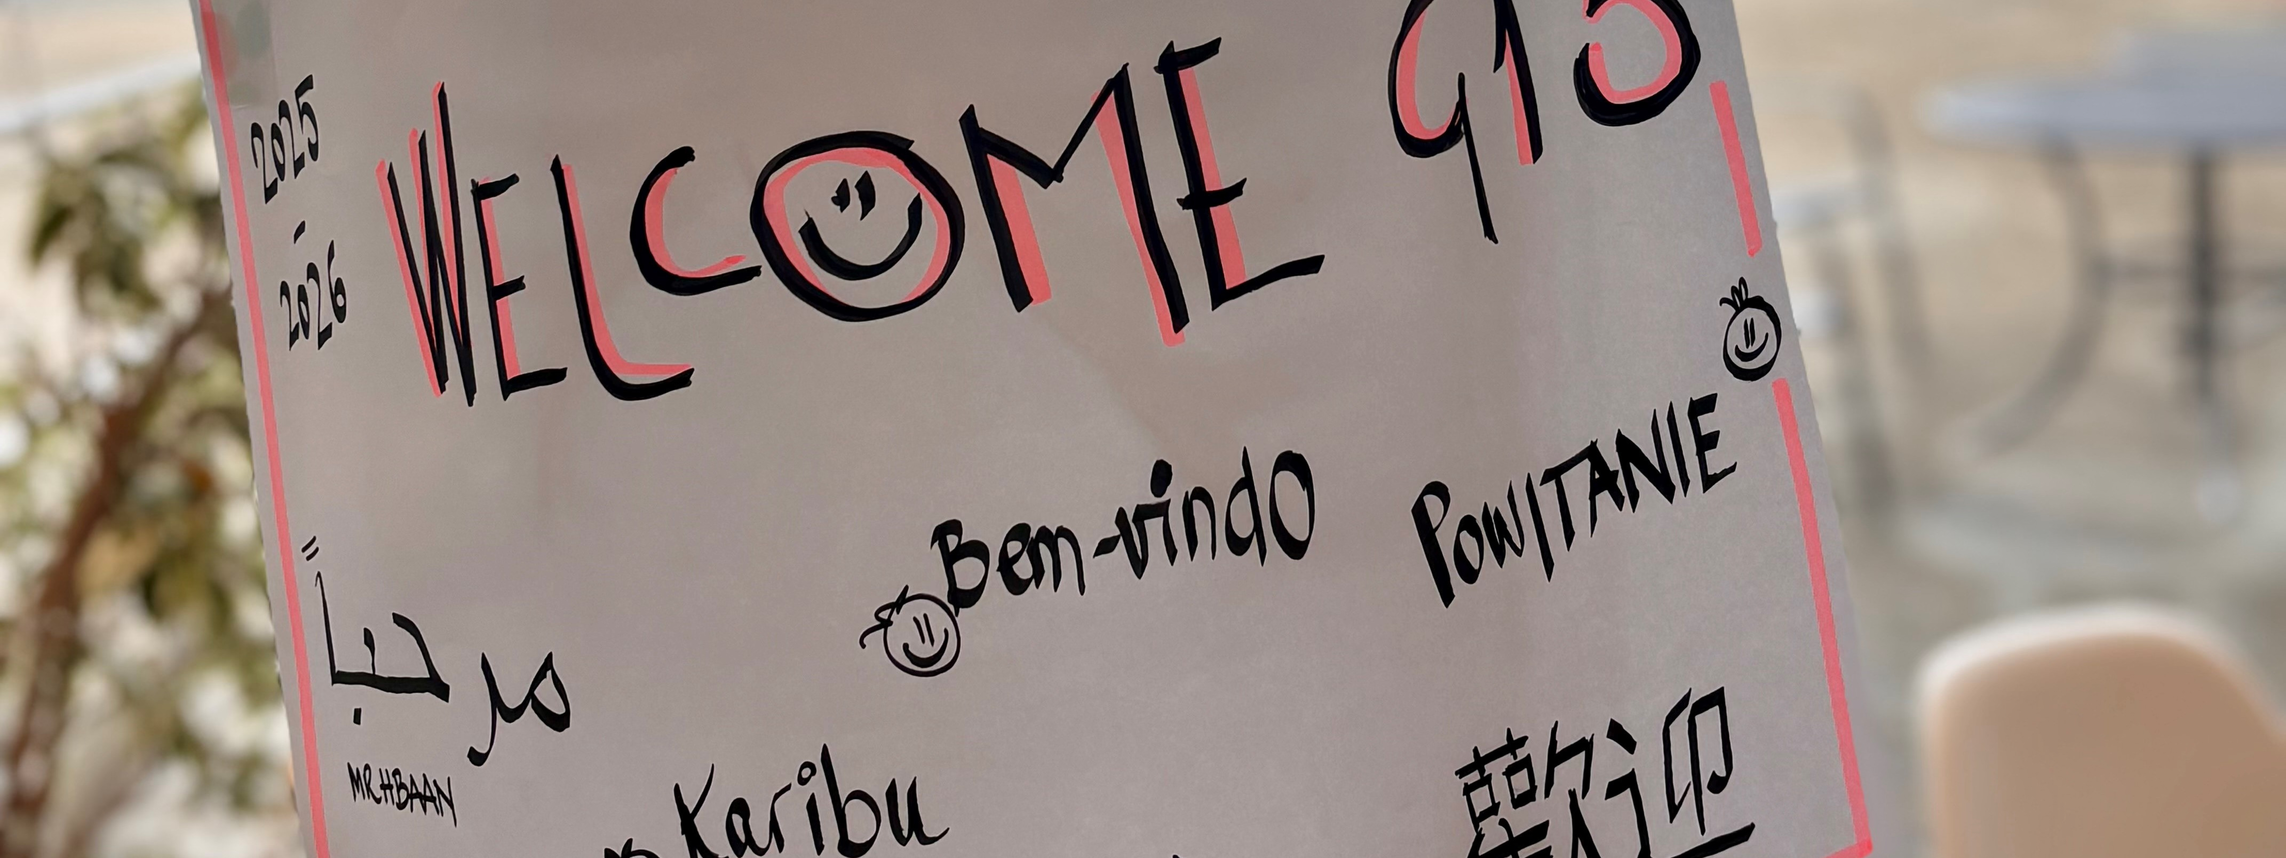 2025
-
2026
WELCOME
Bem-vindo
POWITANIE
مرحباً
MRHBAAN
Karibu
歡迎